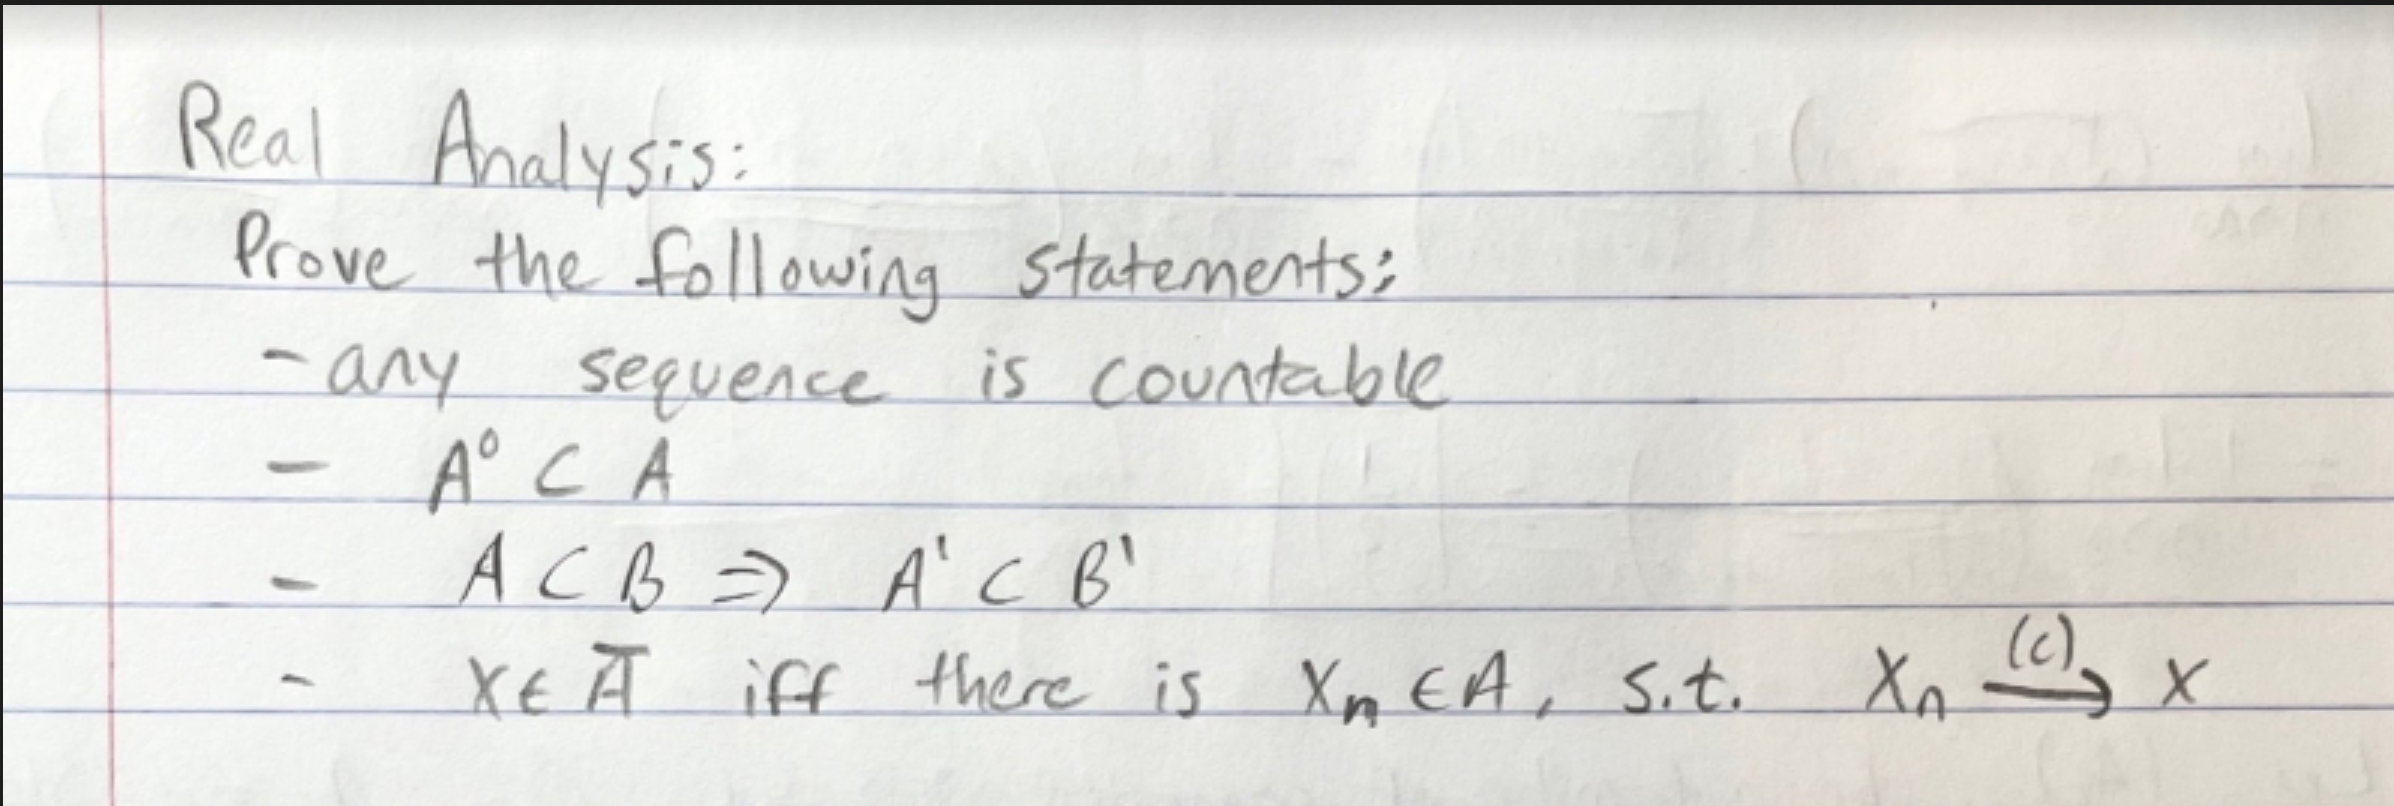 Real Analysis:
Prove the following statements:
- any sequence is countable
- A° ⊂ A
- A ⊂ B ⇒ A' ⊂ B'
- X ∈ A̅ iff there is Xₙ ∈ A, s.t. Xₙ —(c)→ X